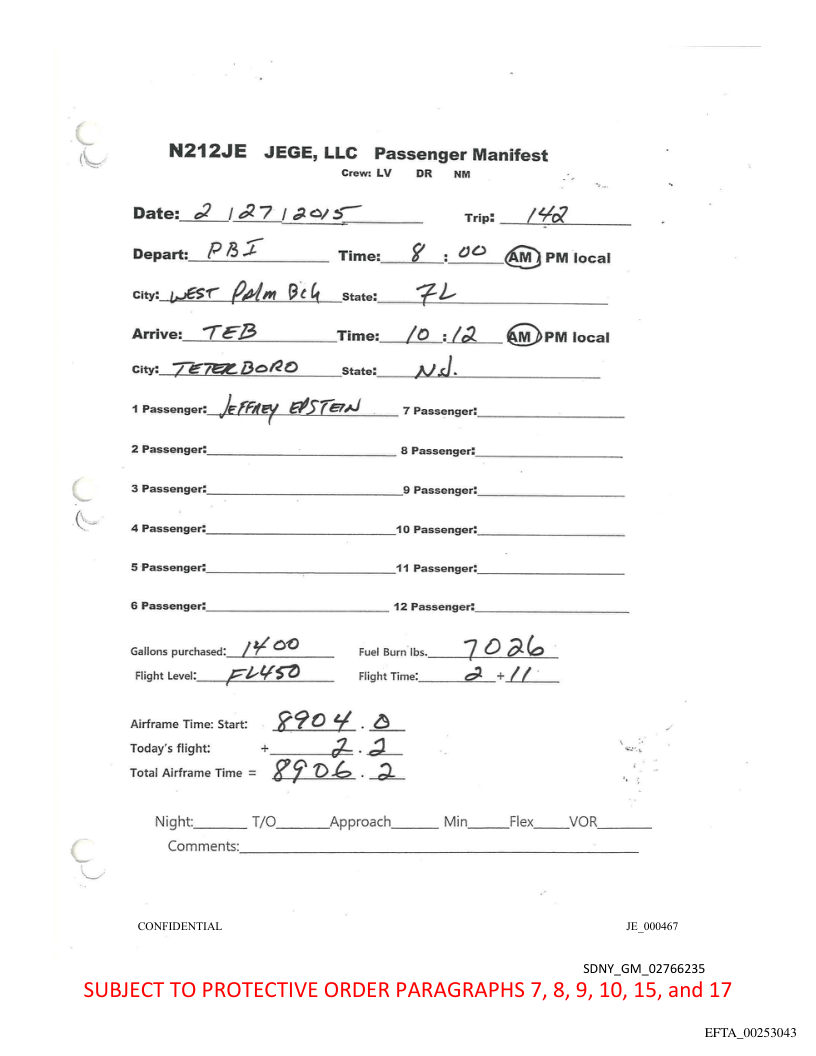 N212JE JEGE, LLC Passenger Manifest
Crew: LV DR NM
Date: 2 / 27 / 2015 Trip: 142
Depart: PBI Time: 8 : 00 AM PM local
City: WEST Palm Bch State: FL
Arrive: TEB Time: 10 : 12 AM PM local
City: TETERBORO State: NJ.
1 Passenger: JEFFREY EPSTEIN 7 Passenger:
2 Passenger: 8 Passenger:
3 Passenger: 9 Passenger:
4 Passenger: 10 Passenger:
5 Passenger: 11 Passenger:
6 Passenger: 12 Passenger:
Gallons purchased: 1400 Fuel Burn lbs. 7026
Flight Level: FL450 Flight Time: 2 + 11
Airframe Time: Start: 8904 . 0
Today's flight: + 2 . 2
Total Airframe Time = 8906 . 2
Night: T/O Approach Min Flex VOR
Comments:
CONFIDENTIAL JE_000467
SDNY_GM_02766235
SUBJECT TO PROTECTIVE ORDER PARAGRAPHS 7, 8, 9, 10, 15, and 17
EFTA_00253043